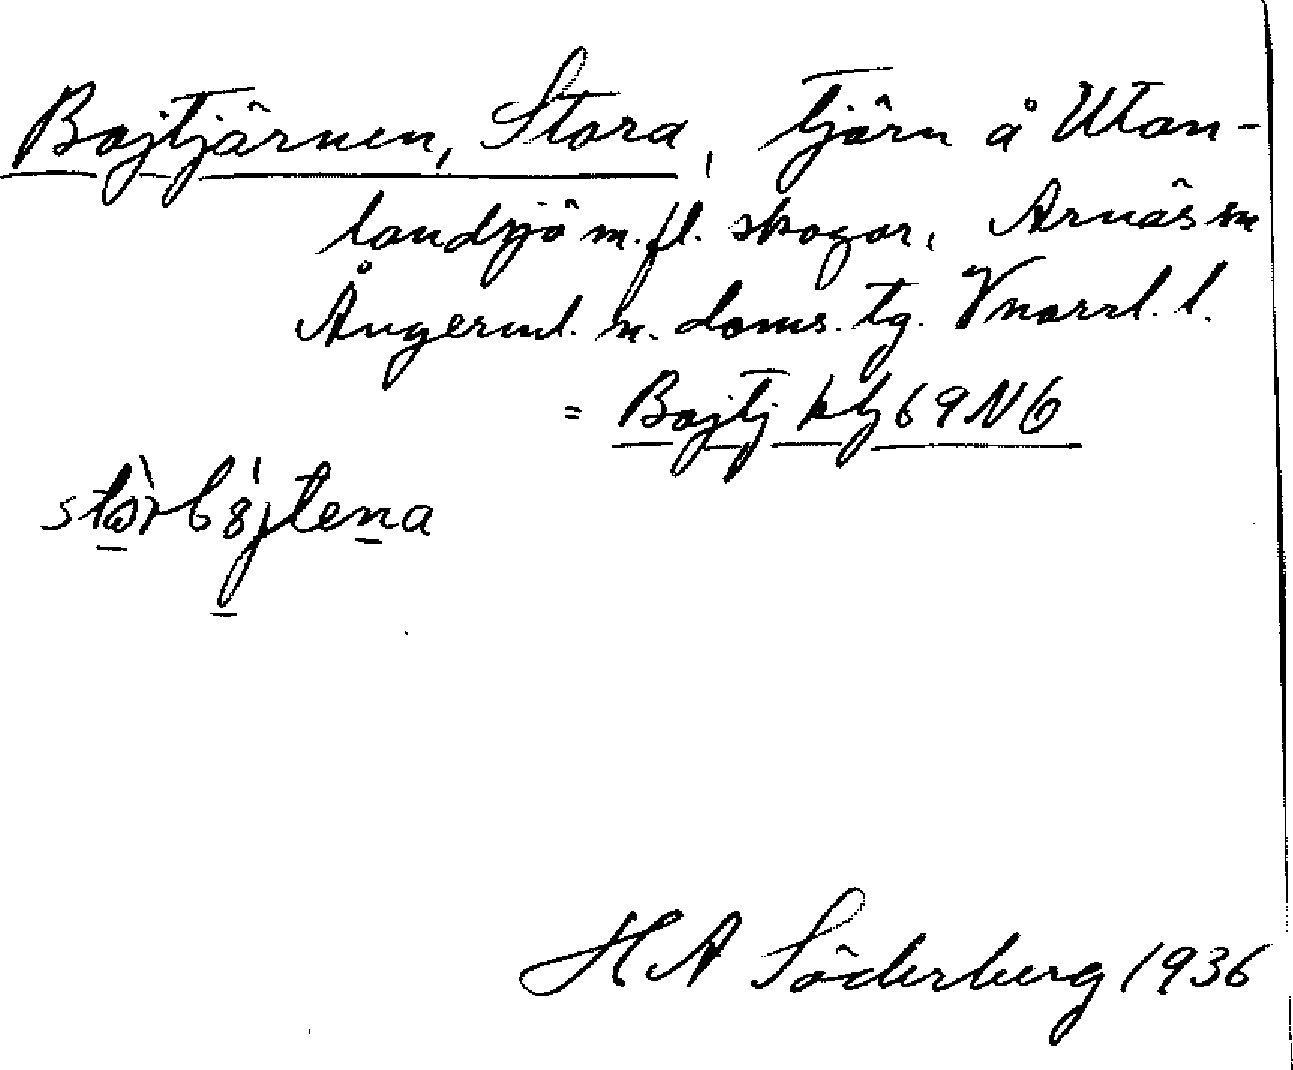 Bojtjärnen, Stora, tjärn å Utan-
landsjö m. fl. skogar, Arnäs sn
Ångerml. n. doms. tg. Vnorrl. l.
= Bojtj kbl 69 N6
stòrbȣ́jtena
H A Söderberg 1936